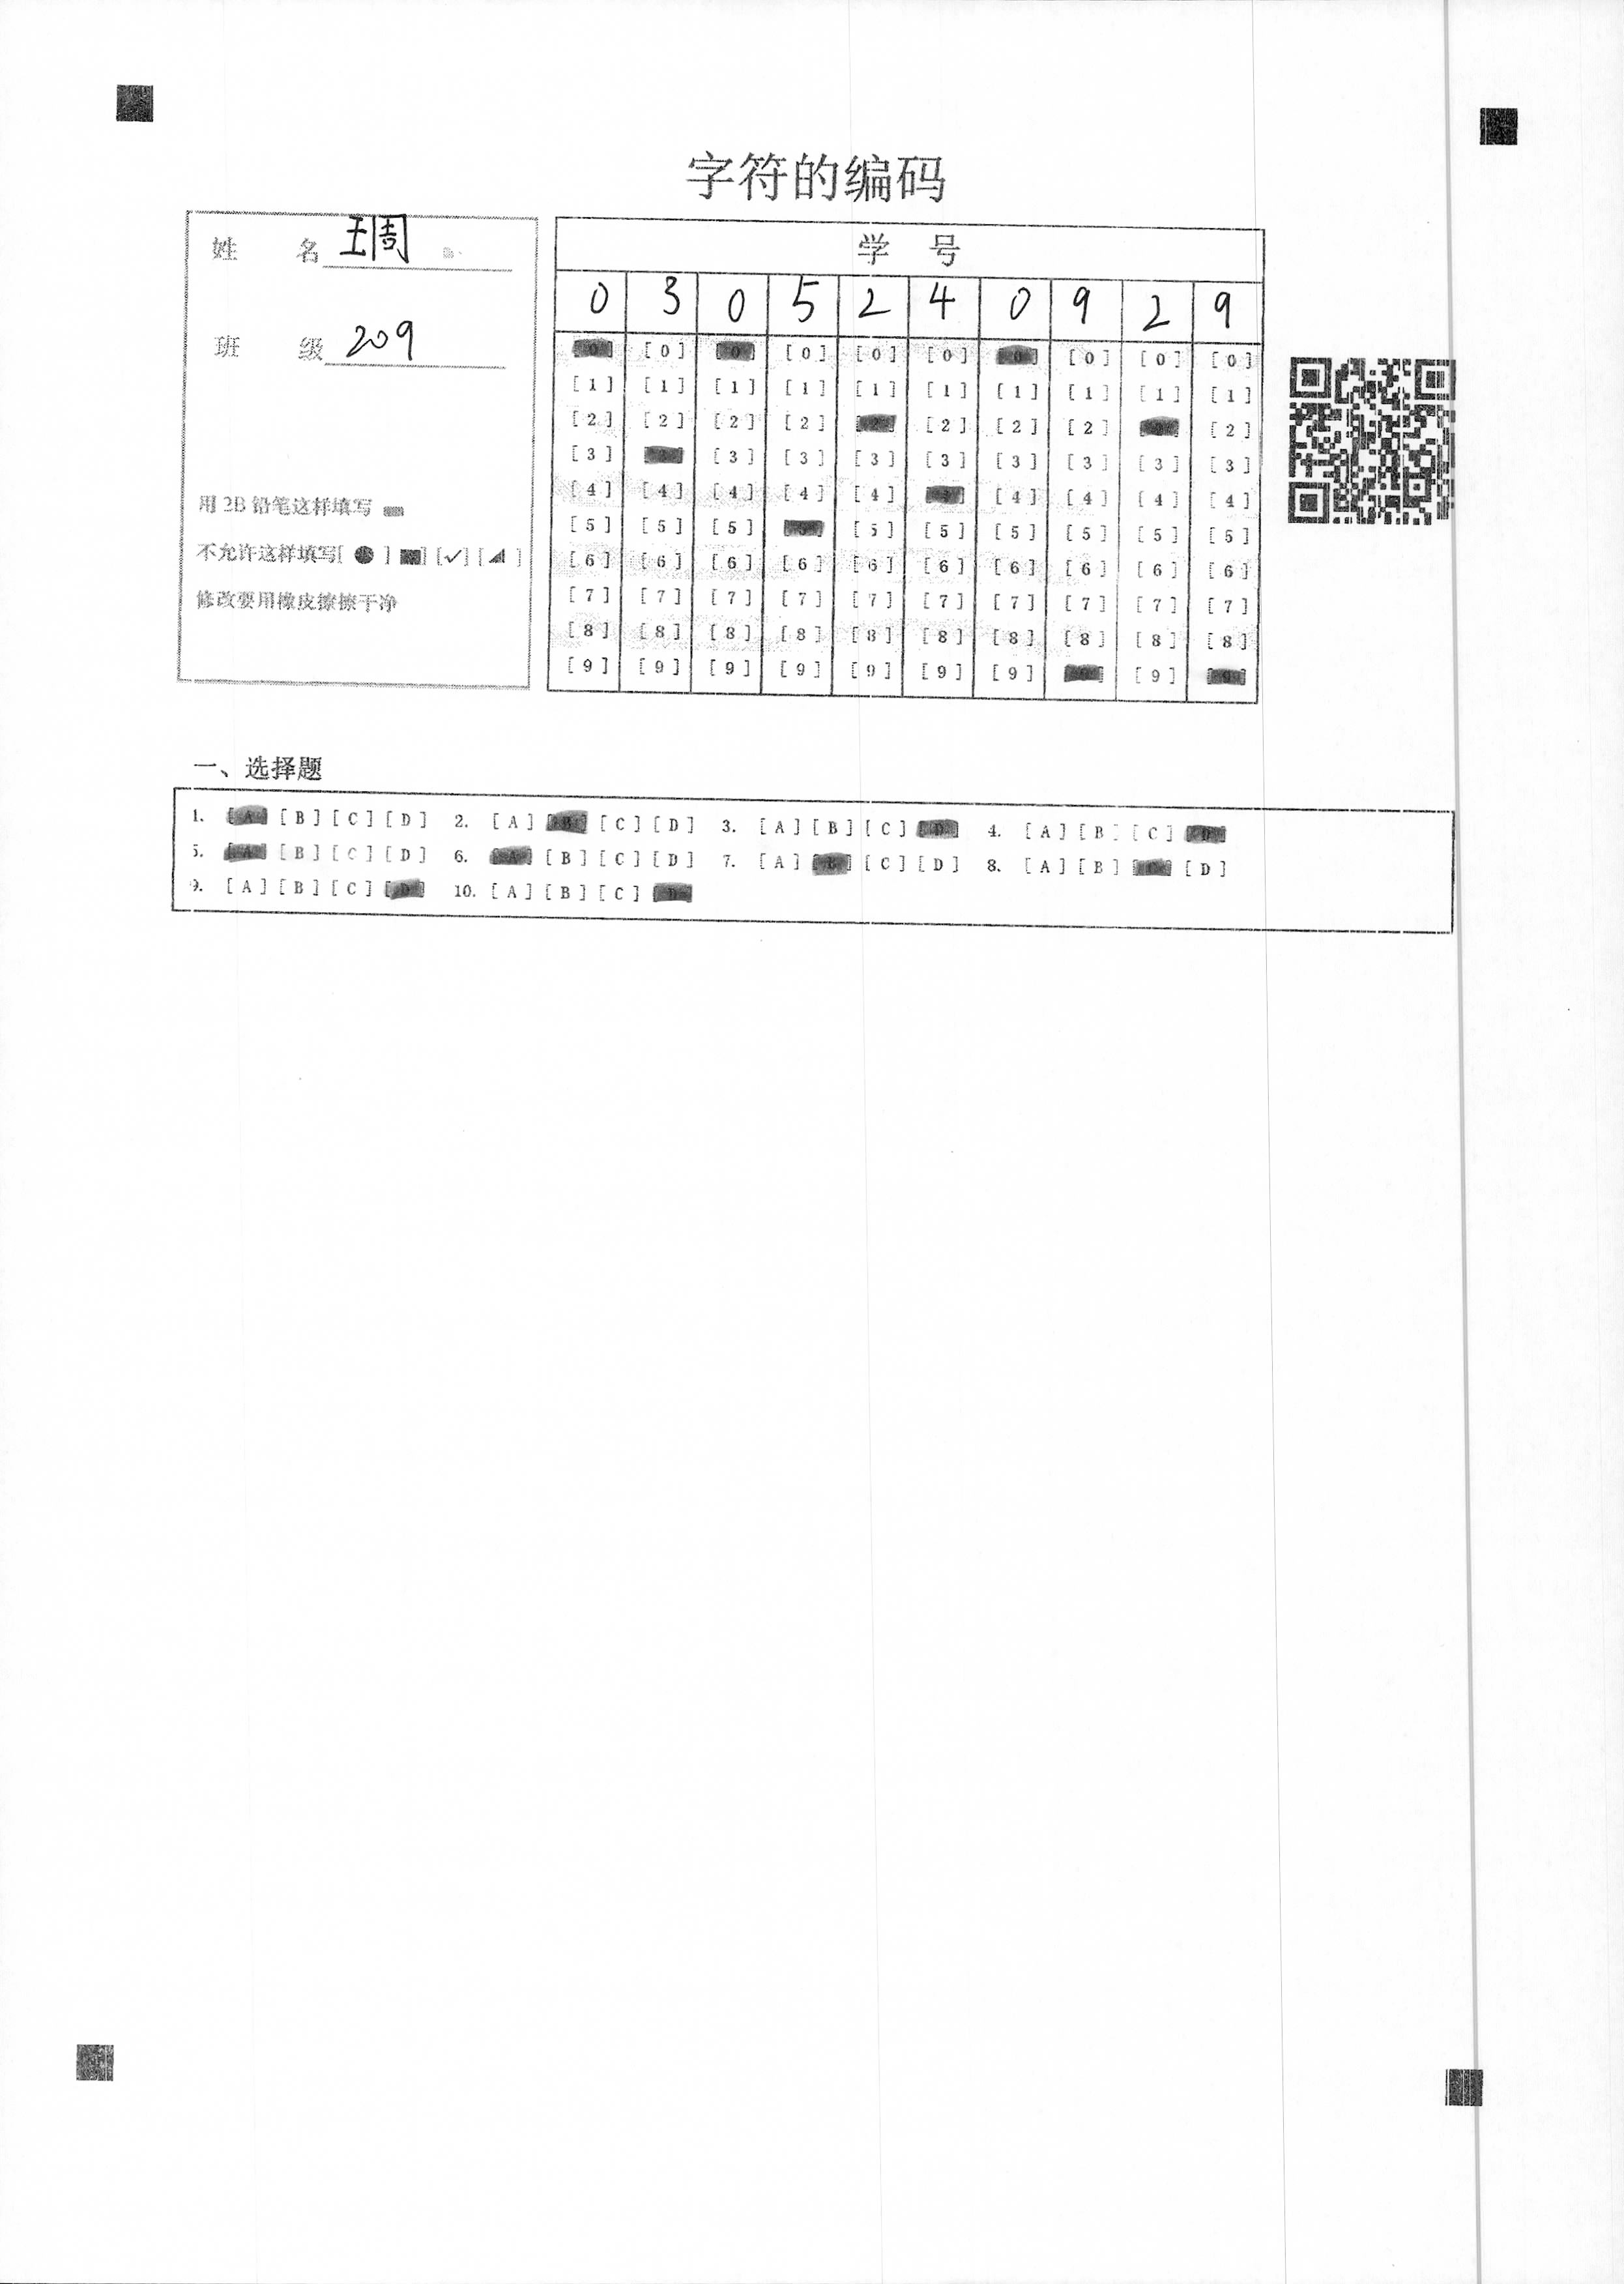 字符的编码
姓 名 王周
班 级 209
用 2B 铅笔这样填写
不允许这样填写[ ● ] [■] [✓] [◢ ]
修改要用橡皮擦擦干净
学 号
0 3 0 5 2 4 0 9 2 9
[0] [0] [0] [0] [0] [0] [0] [0] [0] [0]
[1] [1] [1] [1] [1] [1] [1] [1] [1] [1]
[2] [2] [2] [2] [2] [2] [2] [2]
[3] [3] [3] [3] [3] [3] [3] [3] [3]
[4] [4] [4] [4] [4] [4] [4] [4] [4] [4]
[5] [5] [5] [5] [5] [5] [5] [5] [5]
[6] [6] [6] [6] [6] [6] [6] [6] [6] [6]
[7] [7] [7] [7] [7] [7] [7] [7] [7] [7]
[8] [8] [8] [8] [8] [8] [8] [8] [8] [8]
[9] [9] [9] [9] [9] [9] [9] [9] [9]
一、选择题
1. [A] [B] [C] [D] 2. [A] [B] [C] [D] 3. [A] [B] [C] [D] 4. [A] [B] [C] [D]
5. [A] [B] [C] [D] 6. [A] [B] [C] [D] 7. [A] [B] [C] [D] 8. [A] [B] [C] [D]
9. [A] [B] [C] [D] 10. [A] [B] [C] [D]